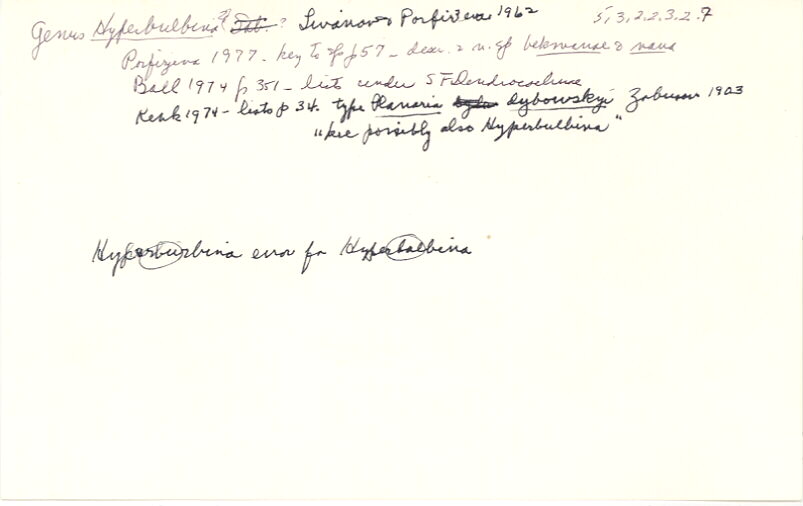 Genus Hyperbulbina ? Livanov & Porfirzeva 1962 5,3,2,2.3.2.7
Porfizeva 1977 - key to spp p57 - descr. 2 n. sp bekmanae & nana
Ball 1974 p 351 - lists under SF Dendrocoelinae
Kenk 1974 - lists p 34. type Planaria dybowskyi Zabusov 1903
"here possibly also Hyperbulbina"
Hyperburbina error for Hyperbulbina